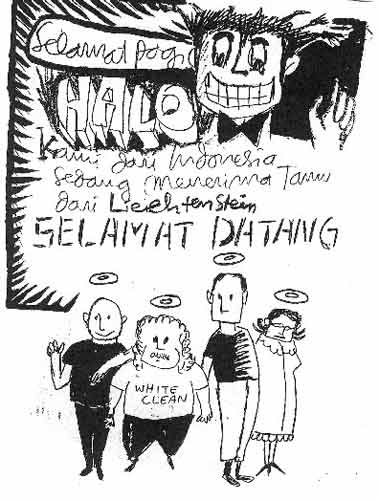 Selamat pagi
HALO
kami dari Indonesia
sedang menerima Tamu
dari Liechtenstein
SELAMAT DATANG
WHITE
CLEAN